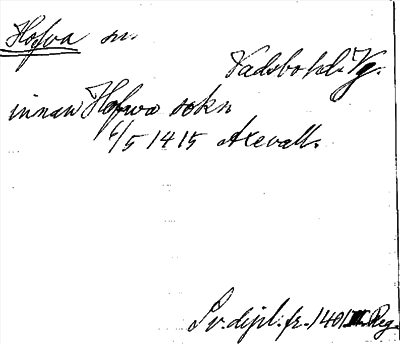 Hofva sn.
Vadsbo hd. Vg.
innan Hofwa sokn
6/5 1415 Axevall.
Sv. dipl. fr. 1401 Reg.